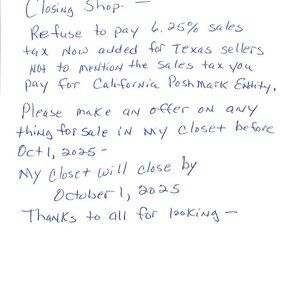 Closing Shop. —
Refuse to pay 6.25% sales
tax now added for Texas sellers
not to mention the sales tax you
pay for California Poshmark Entity.
Please make an offer on any
thing for sale in my closet before
Oct 1, 2025 -
My closet will close by
October 1, 2025
Thanks to all for looking —